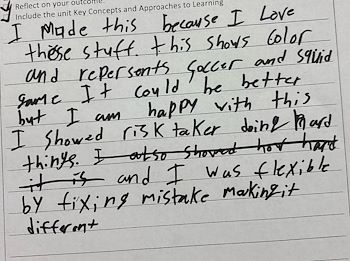 Reflect on your outcome.
Include the unit Key Concepts and Approaches to Learning
I Made this because I Love
these stuff. this shows Color
and repersonts Soccer and Squid
game It could be better
but I am happy with this
I Showed risk taker doing hard
things. I also showed how hard
it is and I was flexible
by fixing mistake making it
different